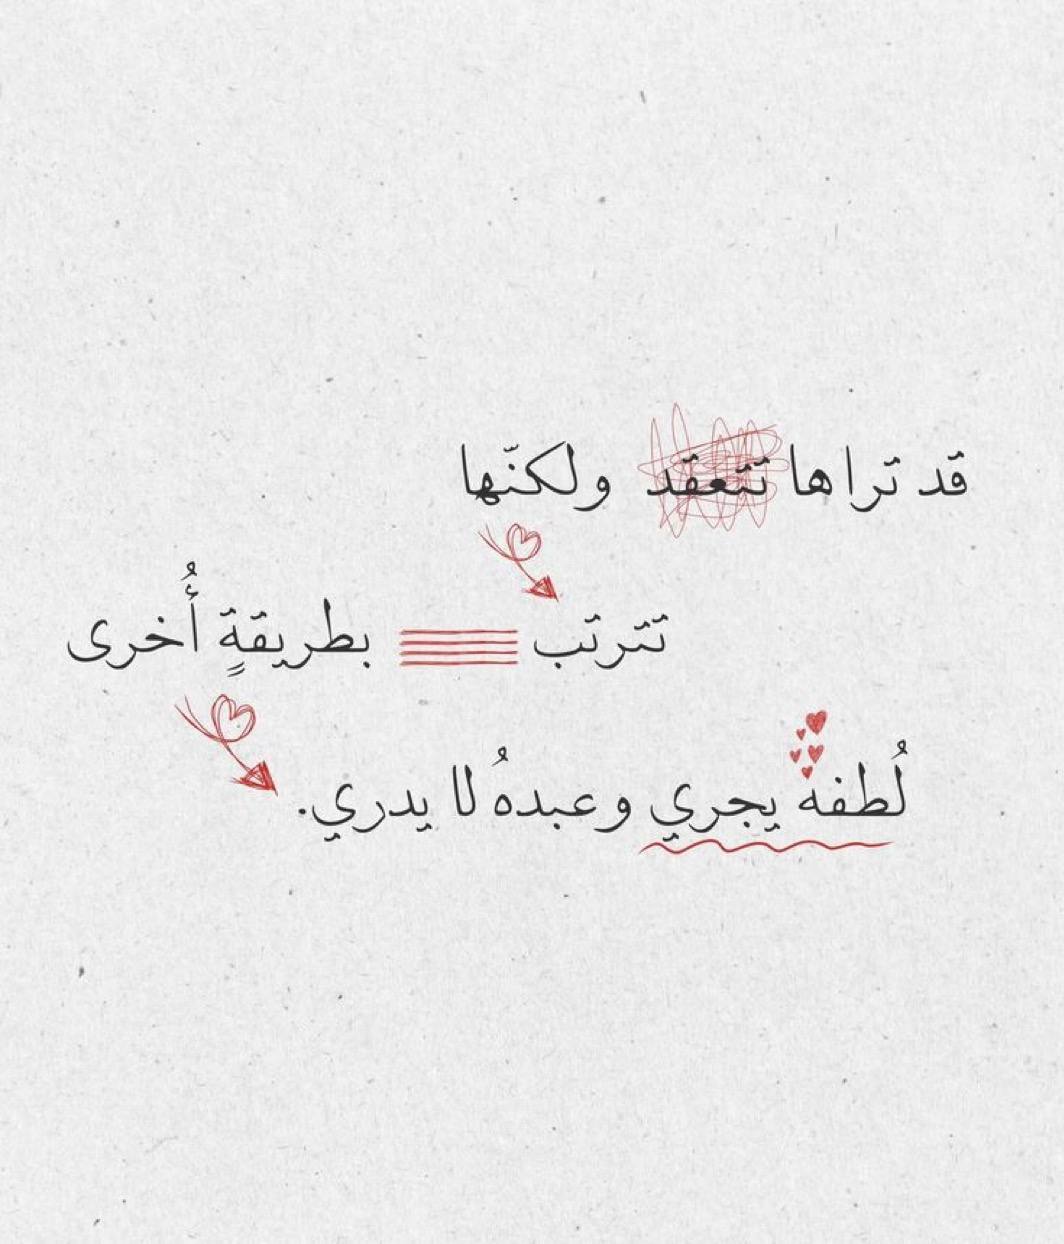 قد تراها تتعقد ولكنّها
تترتب بطريقةٍ أُخرى
لُطفه يجري وعبدهُ لا يدري.